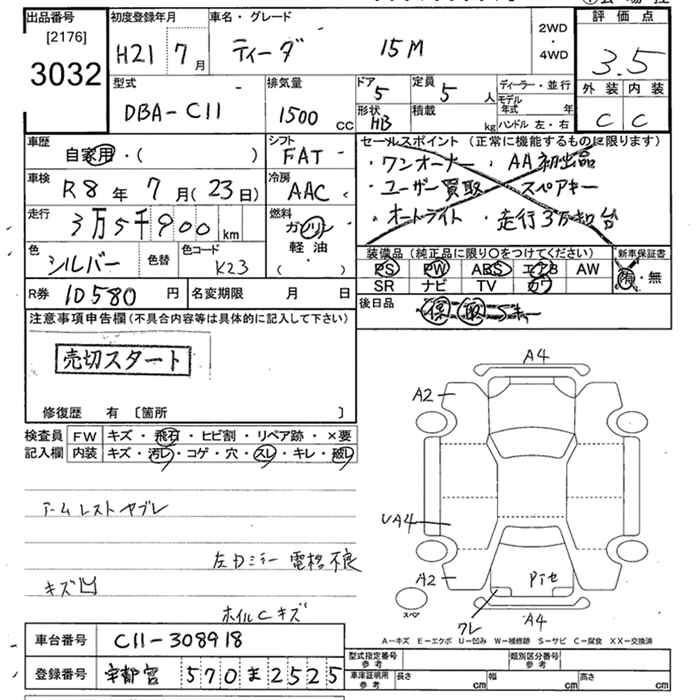 出品番号 初度登録年月 車名・グレード 評価点
[2176] 2WD
3032 H21 7月 ティーダ 15M ・ 3.5
4WD
型式 排気量 ドア 定員 ディーラー・並行 外装 内装
DBA-C11 1500 CC 5 5 人 モデル年式 年 C C
形状 積載 kg ハンドル 左・右
HB
車歴 シフト セールスポイント (正常に機能するものに限ります)
自家用・( ) FAT ・ワンオーナー・AA初出品
車検 冷房 ・ユーザー買取 ・スペアキー
R8年7月(23日) AAC ・オートライト ・走行3万キロ台
走行 燃料
3万5千900km ガソリン
色 色替 色コード 軽油 装備品 (純正品に限り○をつけてください) 新車保証書
シルバー K23 ( ) PS PW ABS エアB AW 有・無
SR ナビ TV カワ
R券 10580円 名変期限 月 日 後日品 保 取 Sキー
注意事項申告欄(不具合内容等は具体的に記入して下さい)
売切スタート
修復歴 有 〔箇所 〕
検査員 FW キズ・飛石・ヒビ割・リペア跡・×要
記入欄 内装 キズ・汚レ・コゲ・穴・スレ・キレ・破レ
A4
A2
アームレストヤブレ
UA4
左Dミラー電格不良
A2
キズ凹
ホイルCキズ
スペア
クレ
A4
A―キズ E―エクボ U―凹み W―補修跡 S―サビ C―腐食 XX―交換済
車台番号 C11-308918
型式指定番号 参考 類別区分番号 参考
登録番号 宇都宮 570 ま 2525
車庫証明用 参考 長さ cm 幅 cm 高さ cm